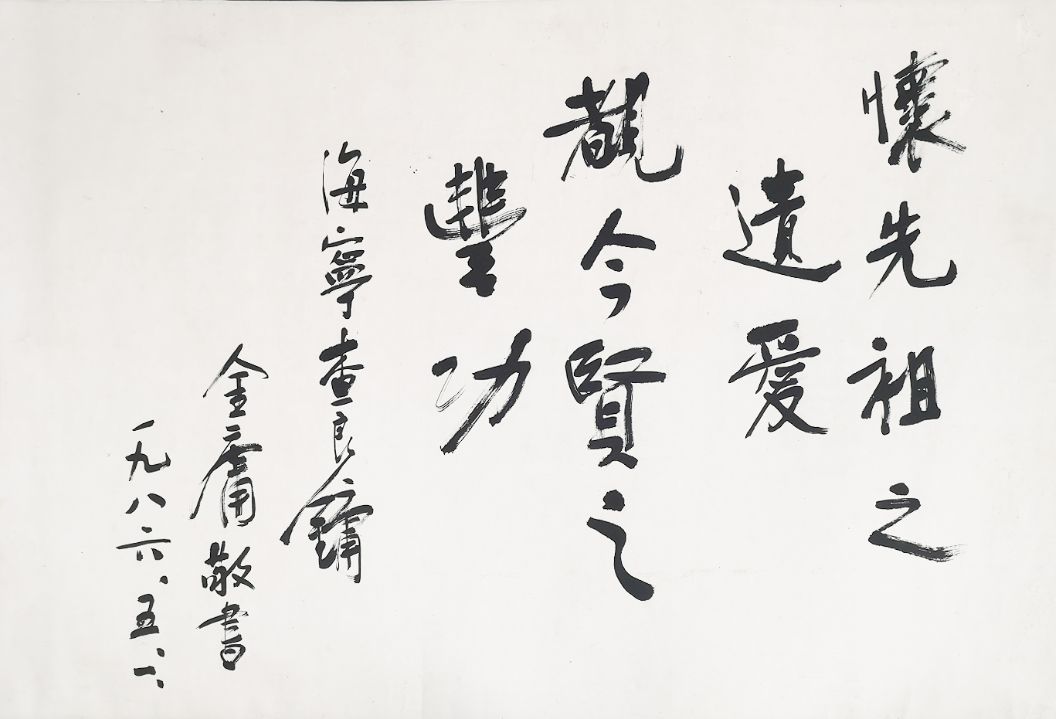 懷先祖之
遺愛
覩今賢之
豐功
海寧查良鏞
金庸敬書
一九八六、五、一、